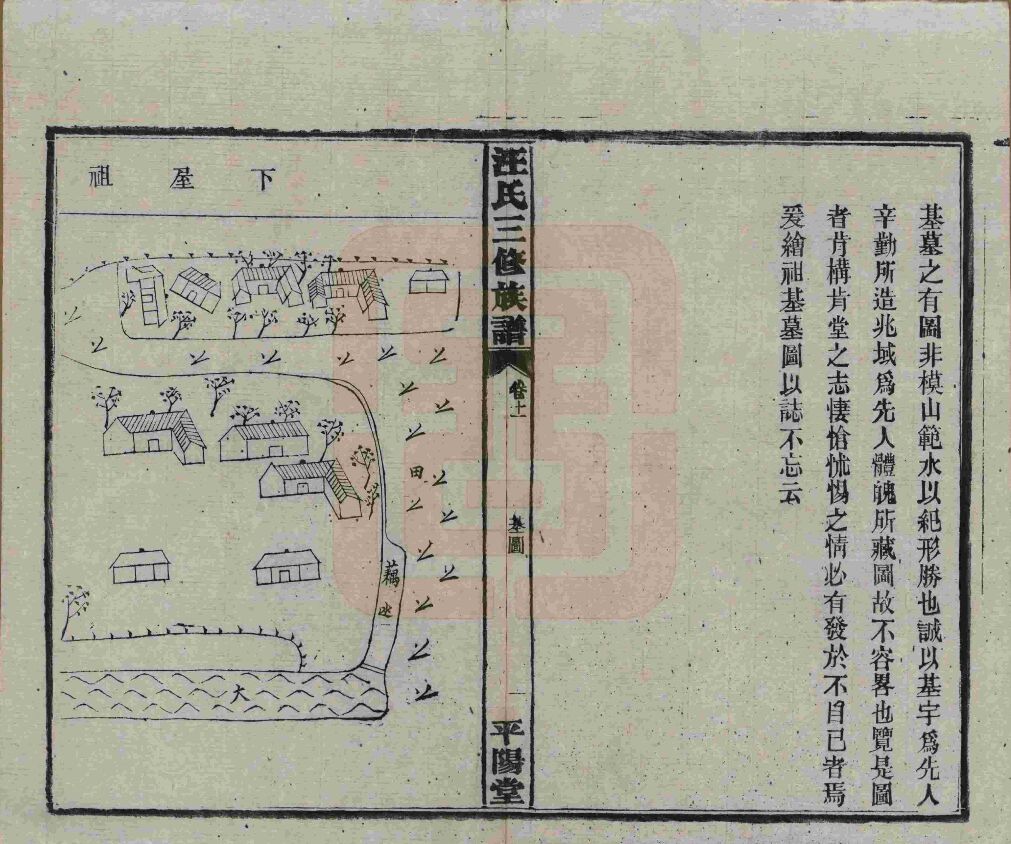 基墓之有圖非模山範水以紀形勝也誠以基宇爲先人
辛勤所造兆域爲先人體魄所藏圖故不容畧也覽是圖
者肯構肯堂之志悽愴怵惕之情必有發於不自已者焉
爰繪祖基墓圖以誌不忘云
汪氏三修族譜
卷十一
基圖
一
平陽堂
下屋祖
田
藕
大